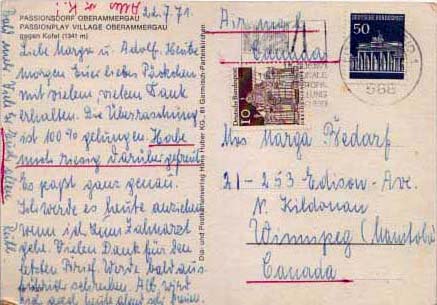 Alles
22.7.71
PASSIONSDORF OBERAMMERGAU
PASSIONPLAY VILLAGE OBERAMMERGAU
gegen Kofel (1341 m)
Liebe Marga u. Adolf. Heute
morgen Euer liebes Päckchen
mit vielem, vielem Dank
erhalten. Die Überraschung
ist 100% gelungen. Habe
mich riesig darüber gefreut
Es passt ganz genau.
Ich werde es heute anziehen
wenn ich zum Zahnarzt
gehe. Vielen Dank für den
letzten Brief. Werde bald aus-
führlich schreiben.
Dia- und Postkartenverlag Hans Huber KG., 81 Garmisch-Partenkirchen
Air mail
Canada
50
DEUTSCHE BUNDESPOST
10
568
Mrs Marga Bedarf
21-253 Edison-Ave.
N. Kildonan
Winnipeg (Manitoba)
Canada